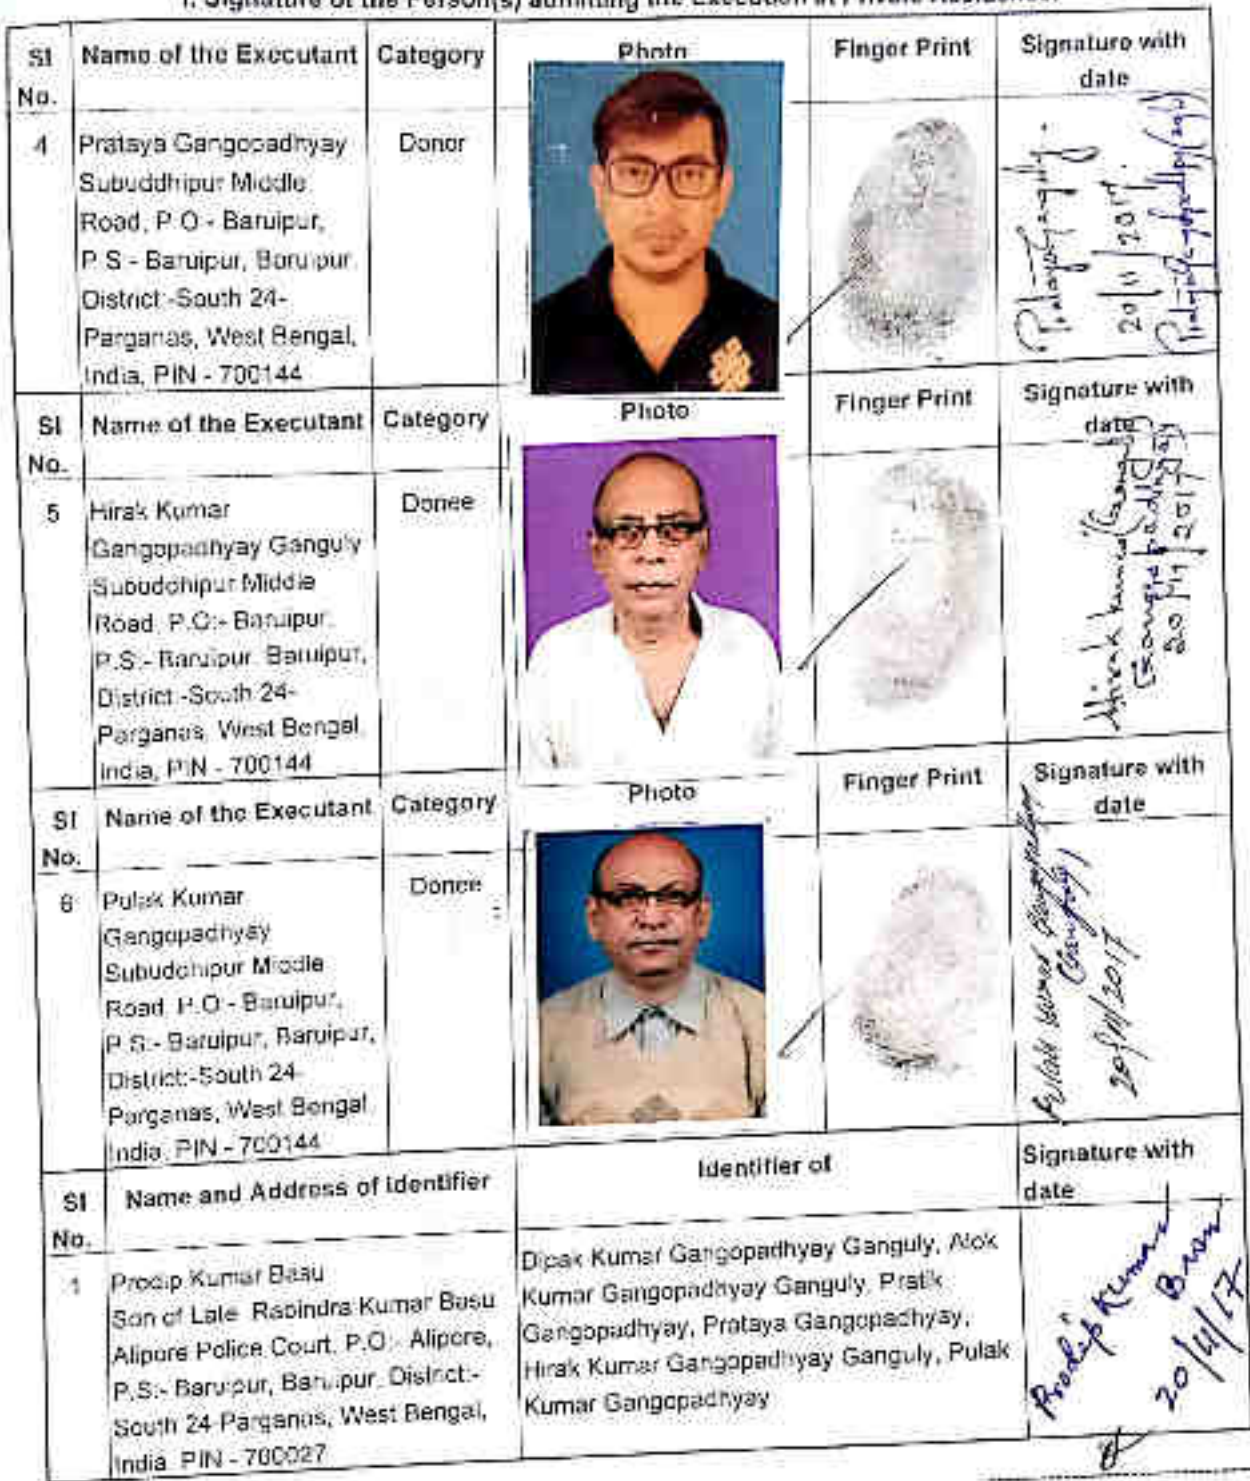 I. Signature of the Person(s) admitting the Execution at Private Residence.
Sl No. Name of the Executant Category Photo Finger Print Signature with date
4 Prataya Gangopadhyay Donor
Subuddhipur Middle
Road, P.O - Baruipur,
P.S - Baruipur, Baruipur,
District:-South 24-
Parganas, West Bengal,
India, PIN - 700144
20/11/2017
Sl No. Name of the Executant Category Photo Finger Print Signature with date
5 Hirak Kumar Donee
Gangopadhyay Ganguly
Subuddhipur Middle
Road, P.O:- Baruipur,
P.S:- Baruipur, Baruipur,
District:-South 24-
Parganas, West Bengal,
India, PIN - 700144
Hirak Kumar
Gangopadhyay
20/11/2017
Sl No. Name of the Executant Category Photo Finger Print Signature with date
6 Pulak Kumar Donee
Gangopadhyay
Subuddhipur Middle
Road, P.O - Baruipur,
P.S:- Baruipur, Baruipur,
District:-South 24-
Parganas, West Bengal,
India, PIN - 700144
Pulak Kumar Gangopadhyay
(Ganguly)
20/11/2017
Sl No. Name and Address of identifier Identifier of Signature with date
1 Prodip Kumar Basu
Son of Late Rabindra Kumar Basu
Alipore Police Court, P.O:- Alipore,
P.S:- Baruipur, Baruipur, District:-
South 24-Parganas, West Bengal,
India, PIN - 700027
Dipak Kumar Gangopadhyay Ganguly, Alok
Kumar Gangopadhyay Ganguly, Pratik
Gangopadhyay, Prataya Gangopadhyay,
Hirak Kumar Gangopadhyay Ganguly, Pulak
Kumar Gangopadhyay
Pradip Kumar
Basu
20/11/17